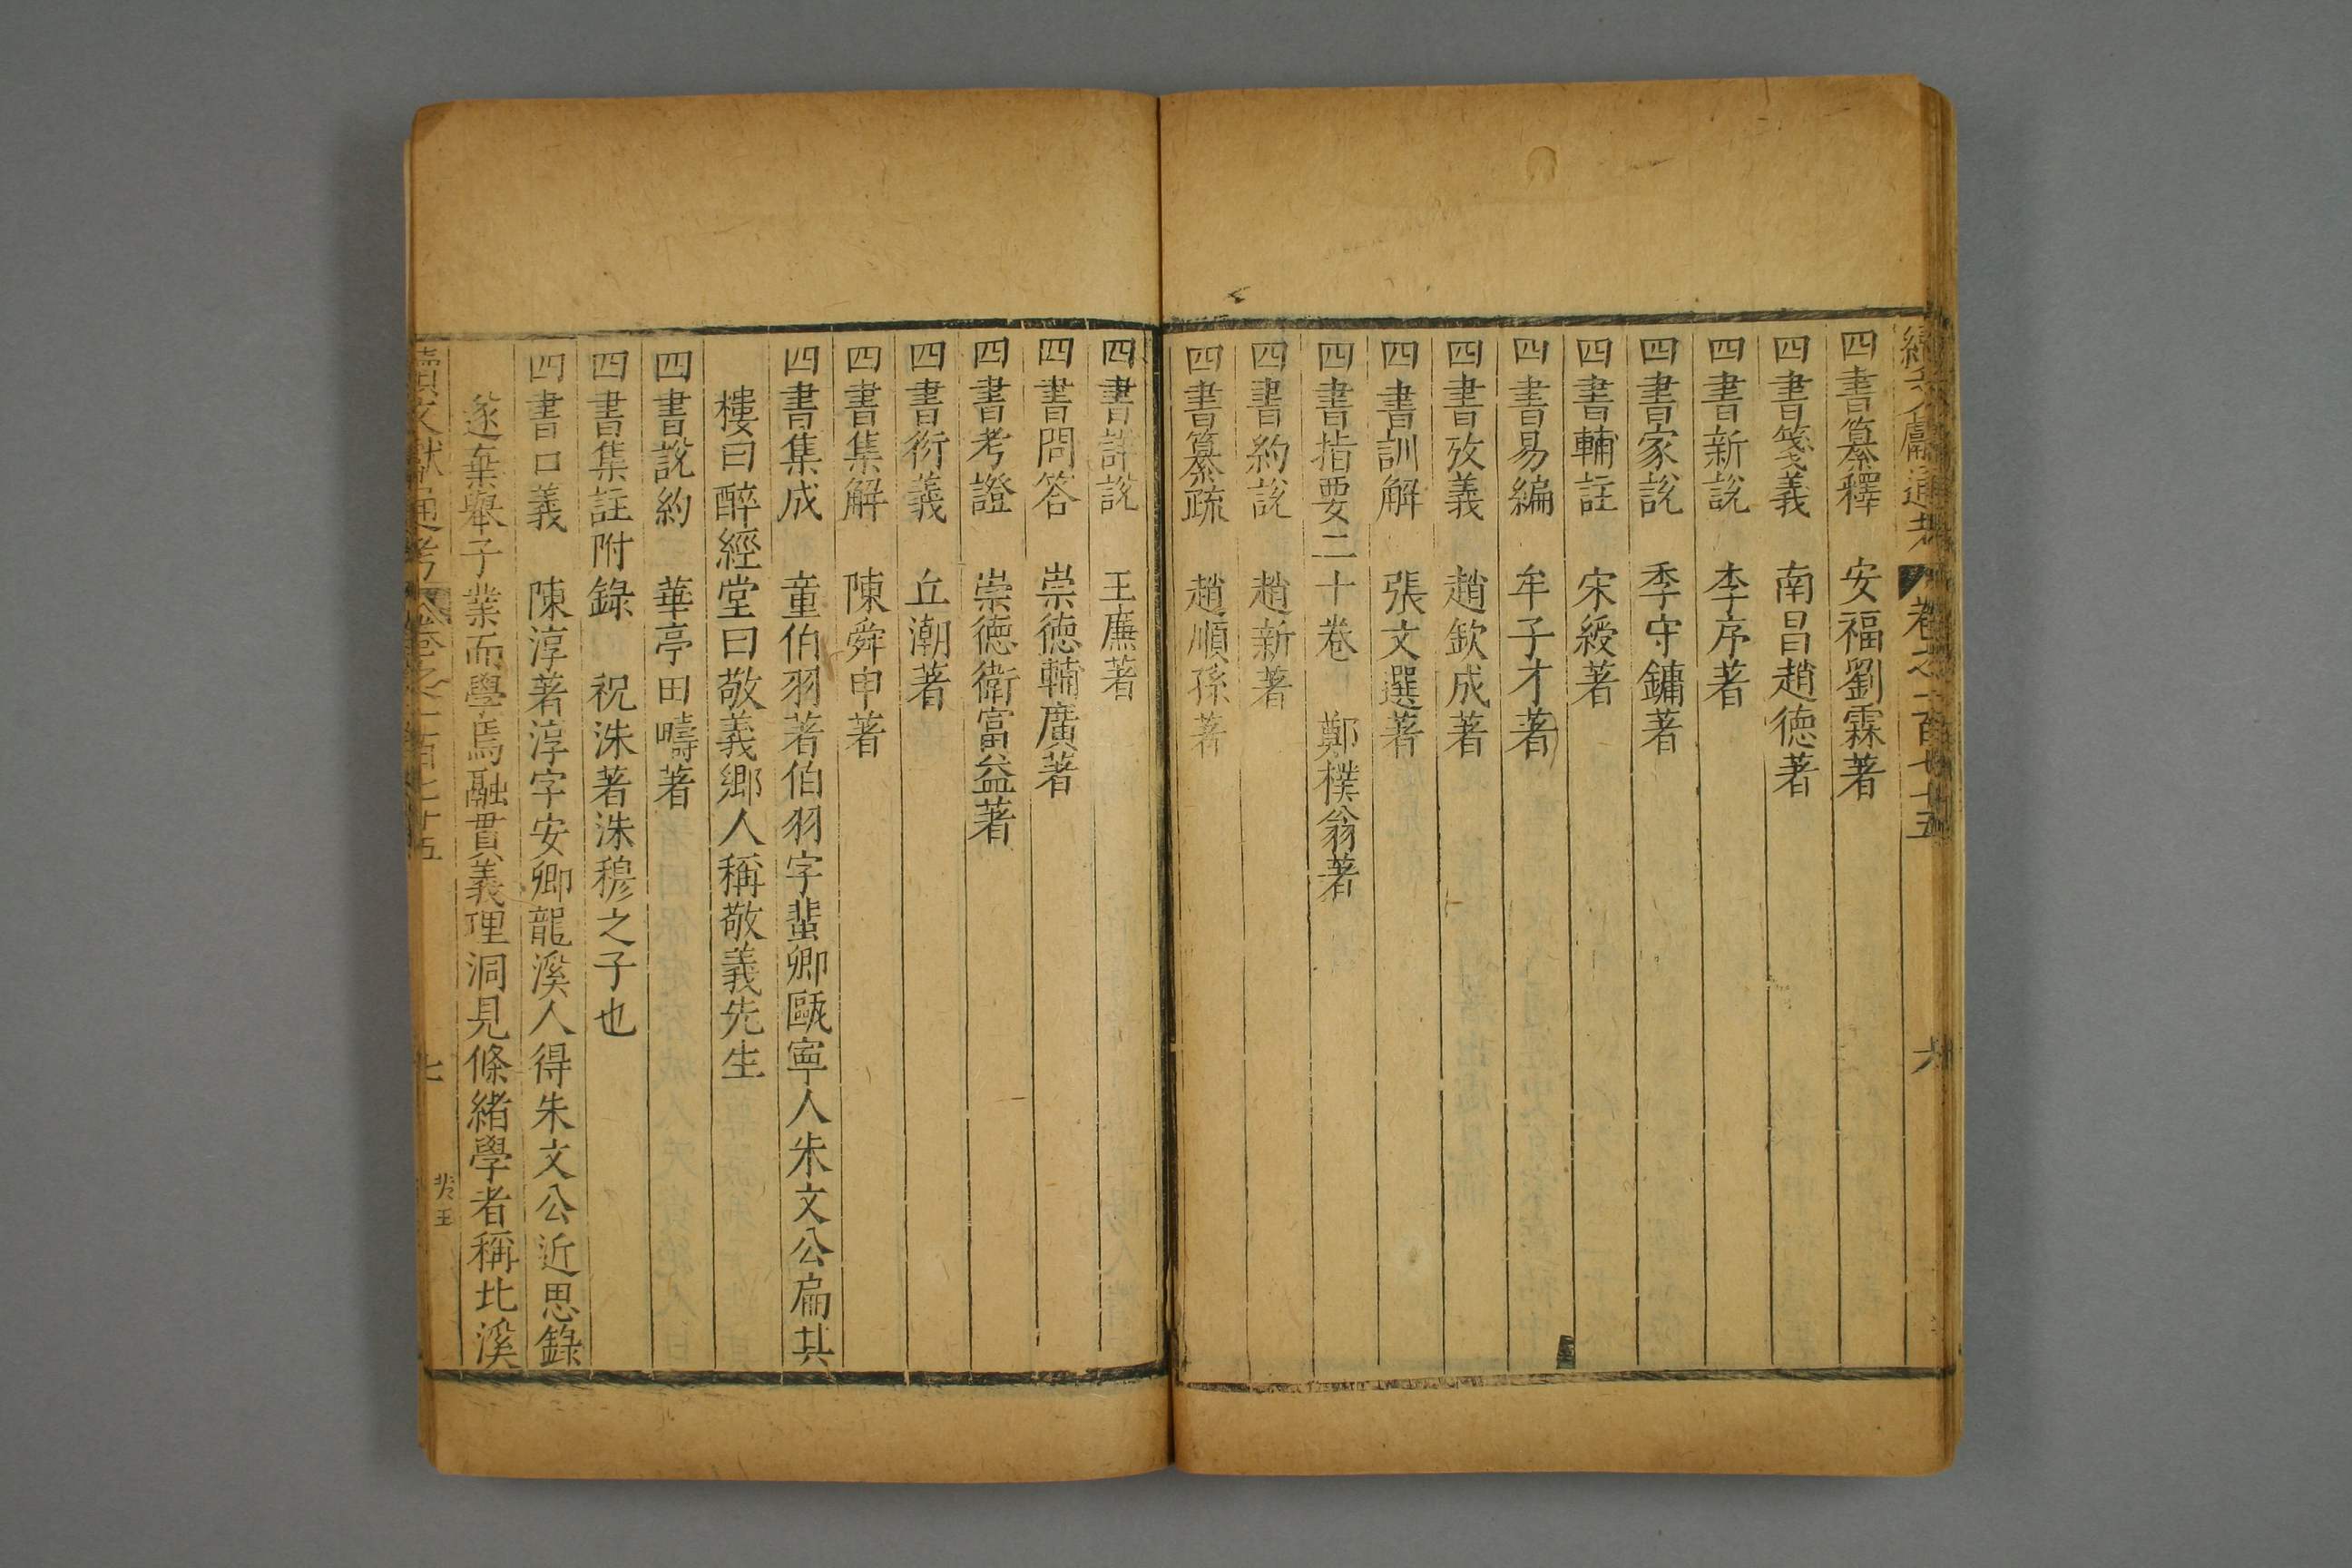 續文獻通考 卷之一百七十五 六
四書纂釋 安福劉霖著
四書箋義 南昌趙德著
四書新說 李序著
四書家說 季守鏞著
四書輔註 宋綬著
四書易編 牟子才著
四書攷義 趙欽成著
四書訓解 張文選著
四書指要二十卷 鄭樸翁著
四書約說 趙新著
四書纂疏 趙順孫著
四書詳說 王廉著
四書問答 崇德輔廣著
四書考證 崇德衛富益著
四書衍義 丘潮著
四書集解 陳舜申著
四書集成 童伯羽著伯羽字蜚卿甌寧人朱文公扁其
樓曰醉經堂曰敬義鄉人稱敬義先生
四書說約 華亭田疇著
四書集註附錄 祝洙著洙穆之子也
四書口義 陳淳著淳字安卿龍溪人得朱文公近思錄
遂棄舉子業而學焉融貫義理洞見條緒學者稱北溪
續文獻通考 卷之一百七十五 七